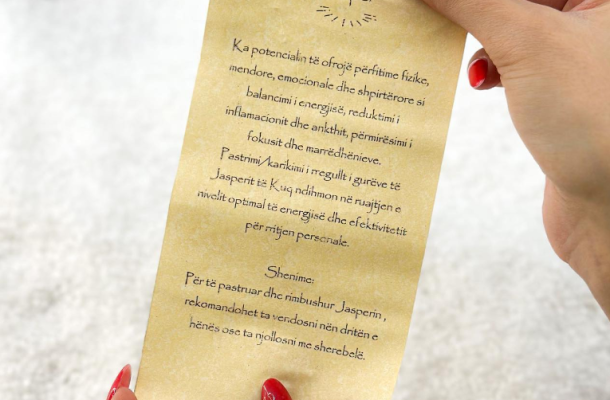 Ka potencialin të ofrojë përfitime fizike,
mendore, emocionale dhe shpirtërore si
balancimi i energjisë, reduktimi i
inflamacionit dhe ankthit, përmirësimi i
fokusit dhe marrëdhënieve.
Pastrimi/karikimi i rregullt i gurëve të
Jasperit të Kuq ndihmon në ruajtjen e
nivelit optimal të energjisë dhe efektivitetit
për rritjen personale.
Shenime:
Për të pastruar dhe rimbushur Jasperin,
rekomandohet ta vendosni nën dritën e
hënës ose ta njollosni me sherebelë.